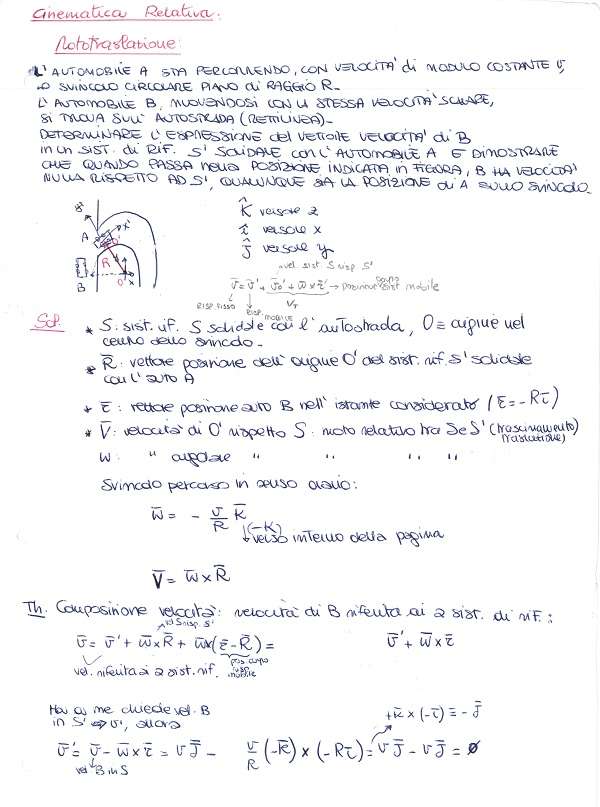 Cinematica Relativa:
Rototraslazione:
L'AUTOMOBILE A STA PERCORRENDO, CON VELOCITA' di MODULO COSTANTE v,
lo SVINCOLO CIRCOLARE PIANO di RAGGIO R.
L'AUTOMOBILE B, MUOVENDOSI CON LA STESSA VELOCITA' SCALARE,
SI TROVA SULL'AUTOSTRADA (RETTILINEA).
DETERMINARE L'ESPRESSIONE del VETTORE VELOCITA' di B
in un SIST. di RIF. S' SOLIDALE con L'AUTOMOBILE A E DIMOSTRARE
CHE QUANDO PASSA nella POSIZIONE INDICATA in FIGURA, B HA VELOCITA'
NULLA RISPETTO AD S', QUALUNQUE SIA LA POSIZIONE di A SULLO SVINCOLO.
y' x' A O' R O x B
k̂ versore z
î versore x
ĵ versore y
vel sist S risp S'
v̄ = v̄' + v̄o' + w̄ x r̄' → posizione corpo sist mobile
RISP. FISSO RISP. MOBILE Vτ
Sol. * S: sist. rif. S solidale con l'autostrada, O ≡ origine nel
centro dello svincolo.
* R̄: vettore posizione dell'origine O' del sist. rif. S' solidale
con l'auto A
* r̄: vettore posizione auto B nell'istante considerato (r̄ = -Rī)
* V̄: velocità di O' rispetto S: moto relativo tra S e S' (trascinamento)
traslazione)
w: " angolare " " " "
Svincolo percorso in senso orario:
w̄ = - v/R k̄
(-k) verso interno della pagina
V̄ = w̄ x R̄
Th. Composizione velocità: velocità di B riferita ai 2 sist. di rif.:
vel S risp S'
v̄ = v̄' + w̄ x R̄ + w̄x(r̄ - R̄) = v̄' + w̄ x r̄
vel. riferita ai 2 sist. rif. pos. corpo risp. mobile
Ma a me chiede vel. B
in S' ⇒ v̄', allora +k̄ x (-ī) = -j̄
v̄' = v̄ - w̄ x r̄ = v j̄ - v/R (-k̄) x (-Rī) = v j̄ - v j̄ = 0
vel B in S